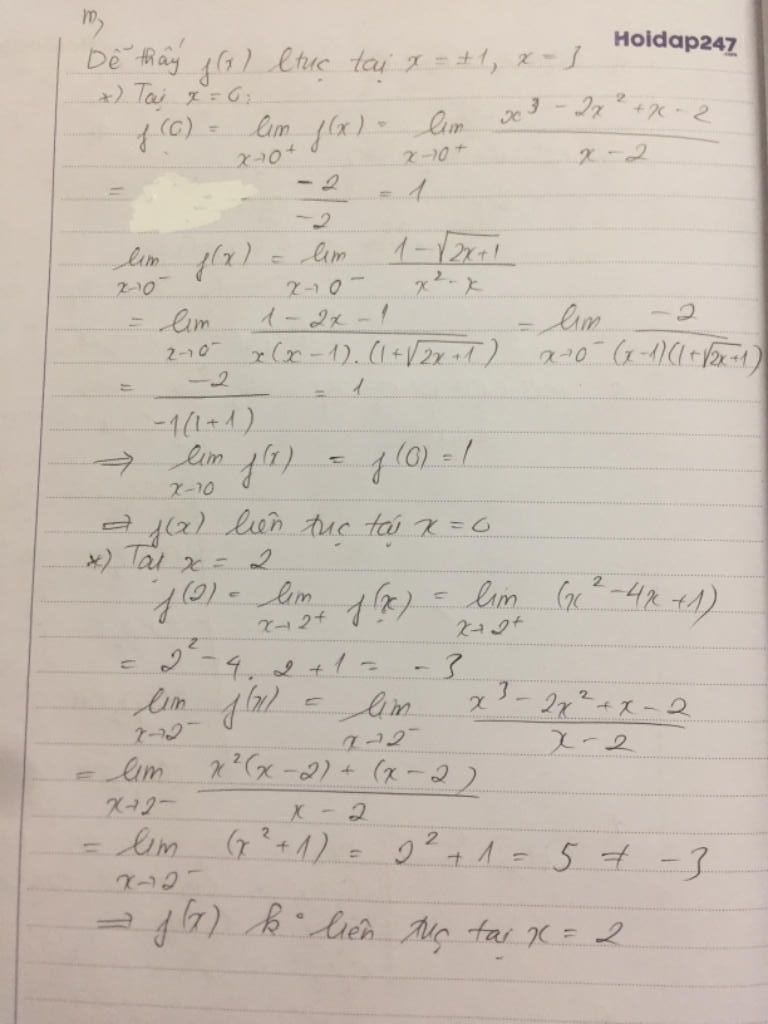 m,
Hoidap247
.com
Dễ thấy f(x) ltục tại x = ±1, x = 3
*) Tại x = 0:
f(0) = lim x→0⁺ f(x) = lim x→0⁺ (x³ - 2x² + x - 2)/(x - 2)
= -2/-2 = 1
lim x→0⁻ f(x) = lim x→0⁻ (1 - √(2x+1))/(x² - x)
= lim x→0⁻ (1 - 2x - 1)/(x(x - 1).(1 + √(2x+1))) = lim x→0⁻ -2/((x-1)(1+√(2x+1)))
= -2/(-1(1+1)) = 1
⇒ lim x→0 f(x) = f(0) = 1
⇒ f(x) liên tục tại x = 0
*) Tại x = 2
f(2) = lim x→2⁺ f(x) = lim x→2⁺ (x² - 4x + 1)
= 2² - 4.2 + 1 = -3
lim x→2⁻ f(x) = lim x→2⁻ (x³ - 2x² + x - 2)/(x - 2)
= lim x→2⁻ (x²(x - 2) + (x - 2))/(x - 2)
= lim x→2⁻ (x² + 1) = 2² + 1 = 5 ≠ -3
⇒ f(x) k° liên tục tại x = 2